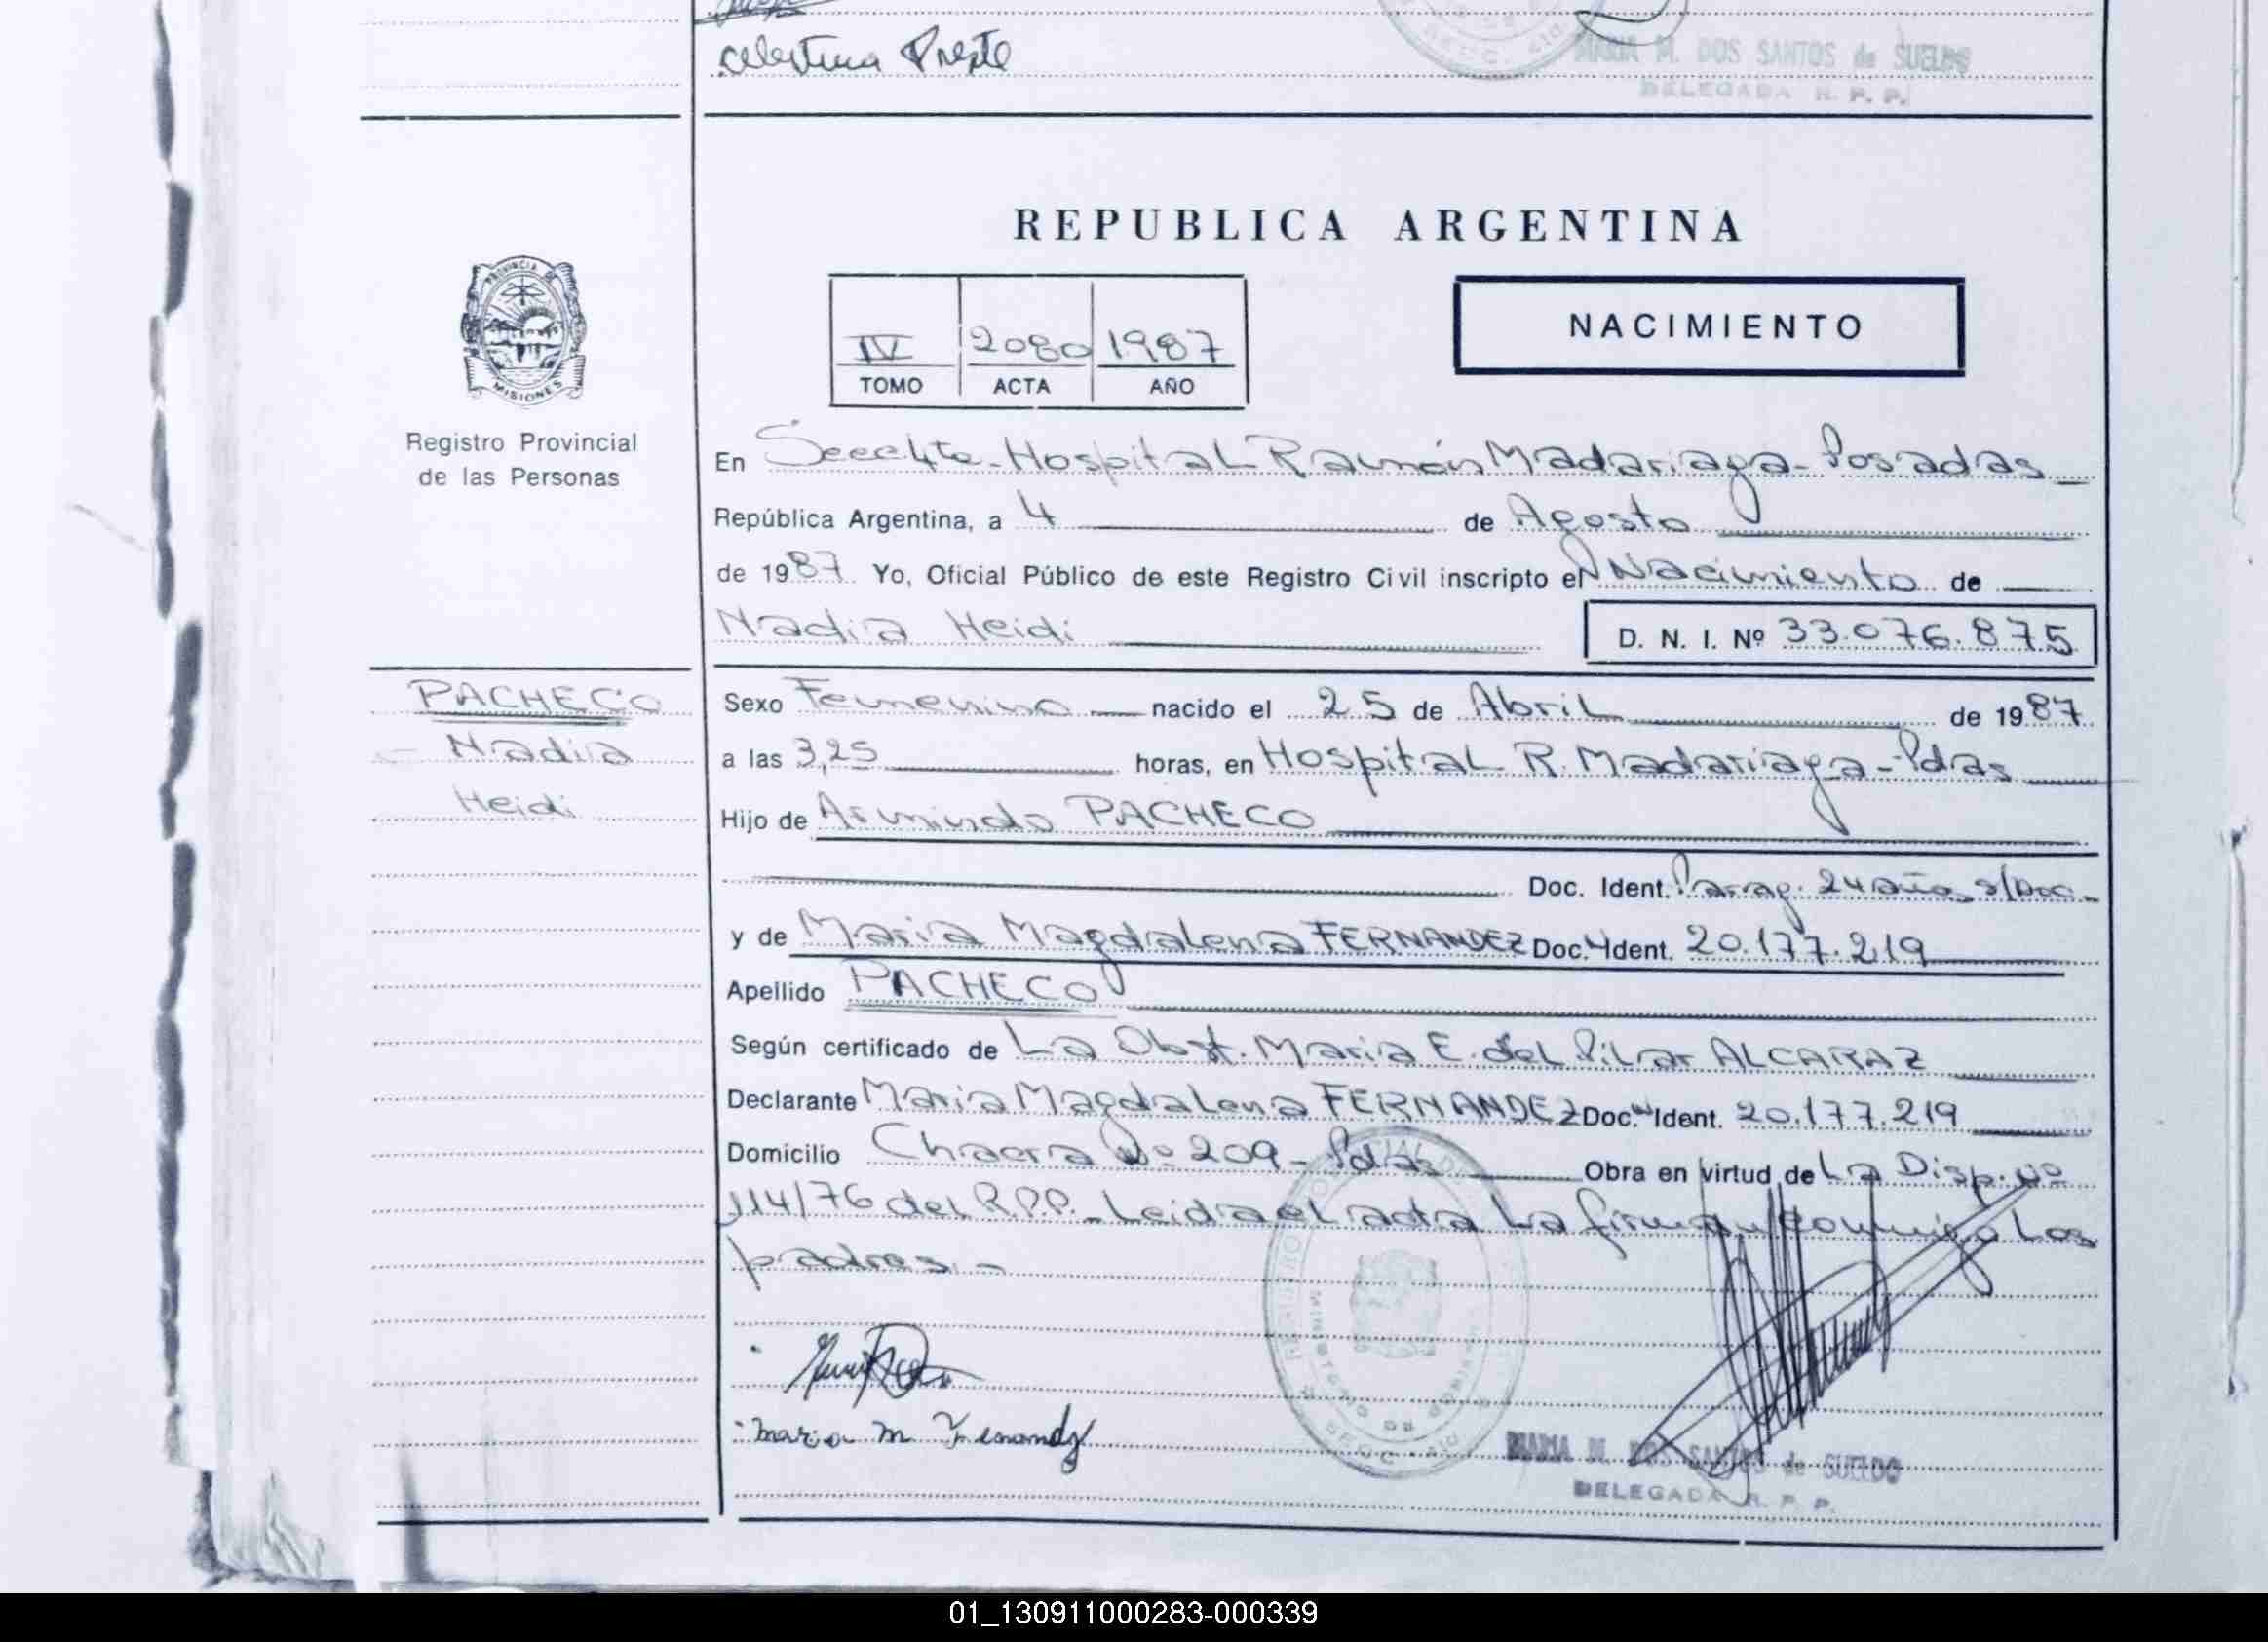 Celestina Preste
MARIA M. DOS SANTOS de SUELDO
DELEGADA R. P. P.
REPUBLICA ARGENTINA
PROVINCIA DE
MISIONES
Registro Provincial
de las Personas
IV 2080 1987
TOMO ACTA AÑO
NACIMIENTO
En Secc 4ta - Hospital Ramón Madariaga - Posadas
República Argentina, a 4 de Agosto
de 1987 Yo, Oficial Público de este Registro Civil inscripto el Nacimiento de
Nadia Heidi D. N. I. Nº 33.076.875
PACHECO
Nadia
Heidi
Sexo Femenino nacido el 25 de Abril de 1987
a las 3,25 horas, en Hospital R. Madariaga - Pdas
Hijo de Armindo PACHECO
Doc. Ident. Parag. 24 años s/Doc.-
y de Maria Magdalena FERNANDEZ Doc. Ident. 20.177.219
Apellido PACHECO
Según certificado de La Obst. Maria E. del Pilar ALCARAZ
Declarante Maria Magdalena FERNANDEZ Doc. Ident. 20.177.219
Domicilio Chacra Nº 209 - Pdas Obra en virtud de La Disp. Nº
114/76 del R.P.P. - Leida el acta La firman conmigo Los
padres -
Maria M Fernandz
MARIA M. DOS SANTOS de SUELDO
DELEGADA R. P. P.
01_130911000283-000339